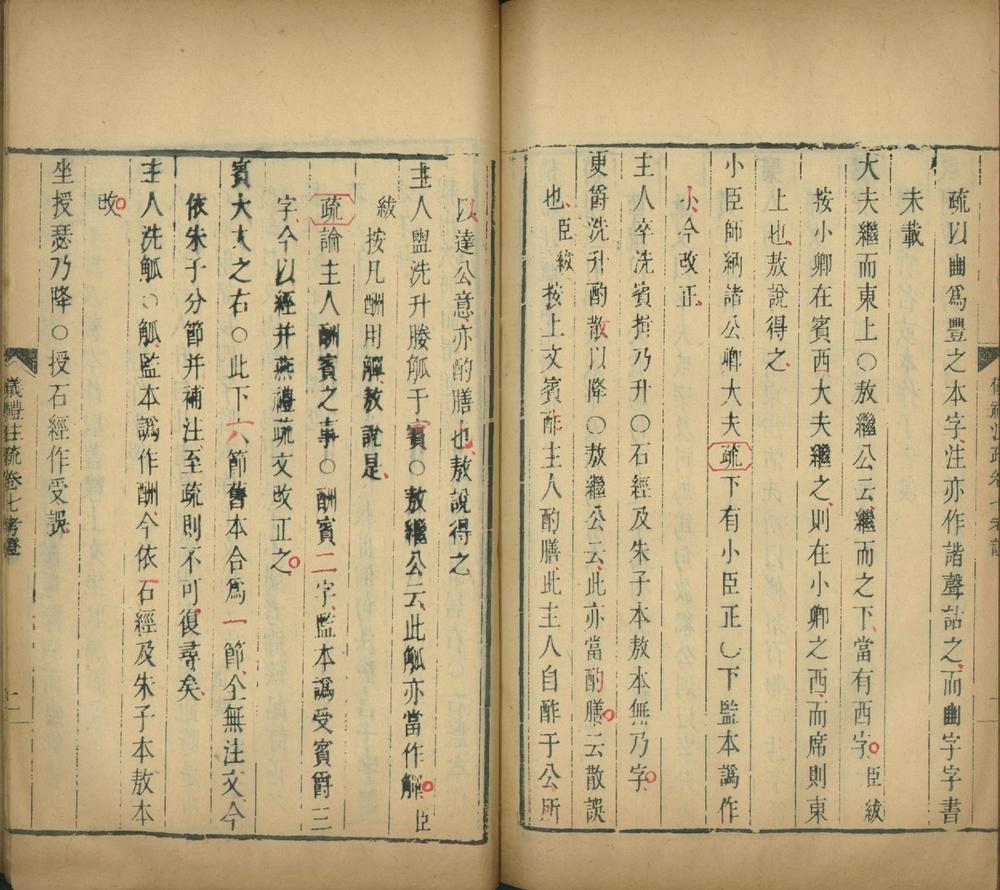 疏以豳爲豐之本字注亦作諧聲詁之而豳字字書
未載
大夫繼而東上○敖繼公云繼而之下當有西字臣紱
按小卿在賓西大夫繼之則在小卿之西而席則東
上也敖說得之
小臣師納諸公卿大夫疏下有小臣正○下監本譌作
小今改正
主人卒洗賓揖乃升○石經及朱子本敖本無乃字
更爵洗升酌散以降○敖繼公云此亦當酌膳云散誤
也臣紱按上文賓酢主人酌膳此主人自酢于公所
以達公意亦酌膳也敖說得之
主人盥洗升媵觚于賓○敖繼公云此觚亦當作觶臣
紱按凡酬用觶敖說是
疏論主人酬賓之事○酬賓二字監本譌受賓爵三
字今以經并燕禮疏文改正之
賓大夫之右○此下六節舊本合爲一節全無注文今
依朱子分節并補注至疏則不可復尋矣
主人洗觚○觚監本譌作酬今依石經及朱子本敖本
改
坐授瑟乃降○授石經作受誤
儀禮注疏卷七考證